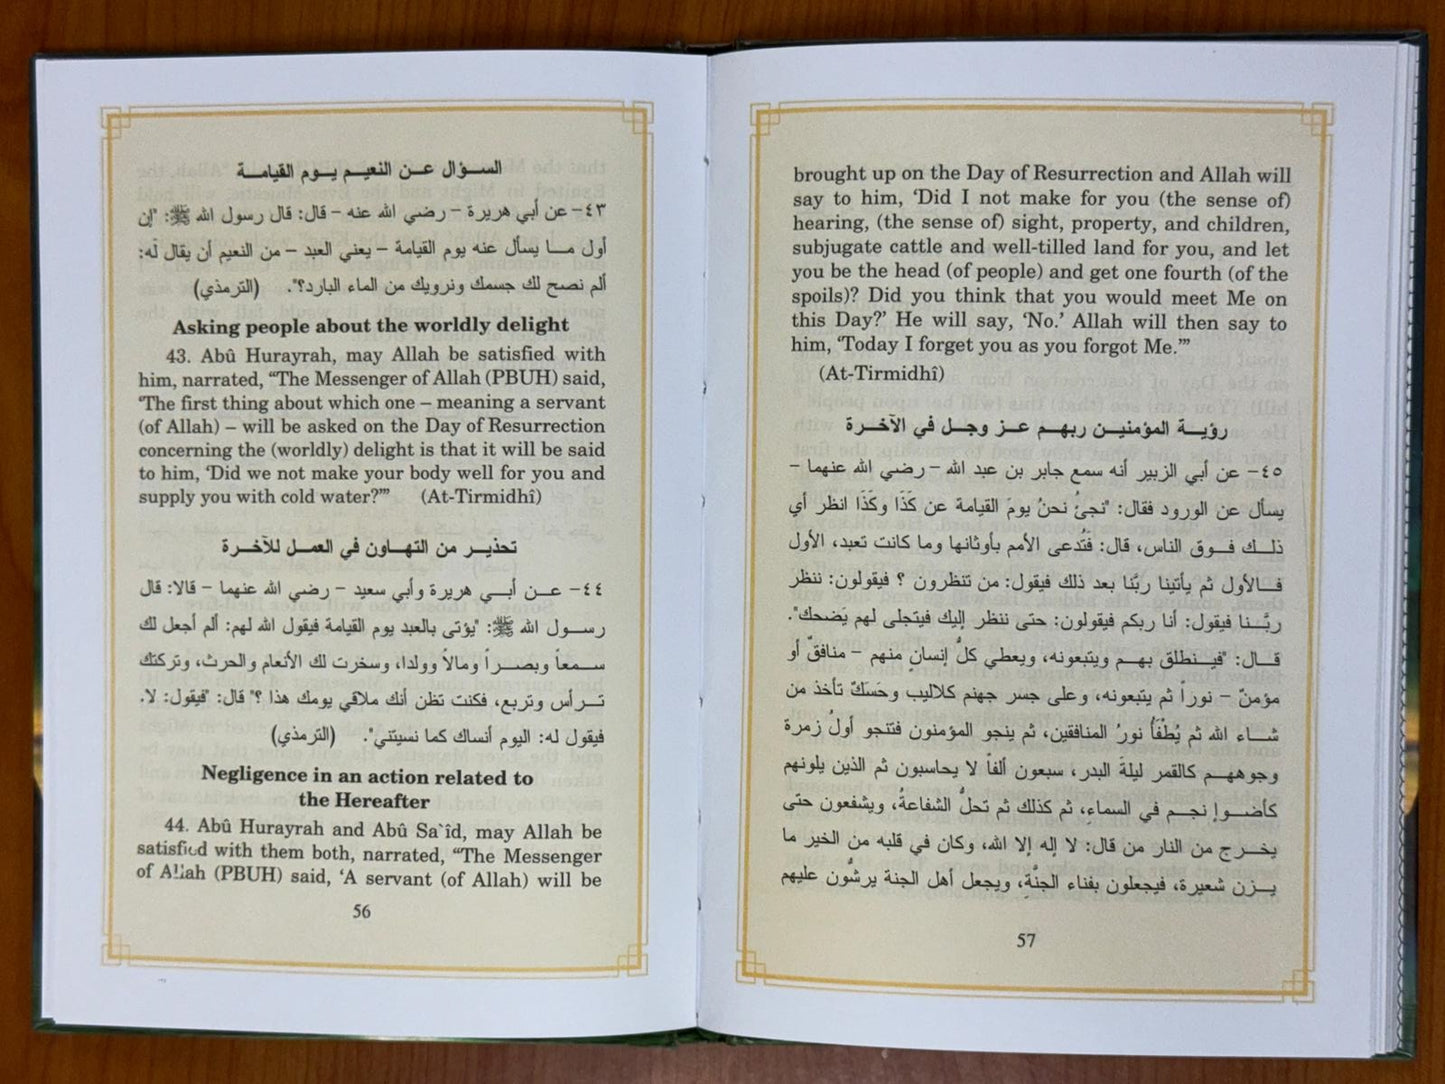 السؤال عن النعيم يوم القيامة
٤٣- عن أبي هريرة – رضي الله عنه – قال: قال رسول الله ﷺ: "إن
أول ما يسأل عنه يوم القيامة – يعني العبد – من النعيم أن يقال له:
ألم نصح لك جسمك ونرويك من الماء البارد؟". (الترمذي)
Asking people about the worldly delight
43. Abû Hurayrah, may Allah be satisfied with
him, narrated, “The Messenger of Allah (PBUH) said,
‘The first thing about which one – meaning a servant
(of Allah) – will be asked on the Day of Resurrection
concerning the (worldly) delight is that it will be said
to him, ‘Did we not make your body well for you and
supply you with cold water?’” (At-Tirmidhî)
تحذير من التهاون في العمل للآخرة
٤٤- عن أبي هريرة وأبي سعيد – رضي الله عنهما – قالا: قال
رسول الله ﷺ: "يؤتى بالعبد يوم القيامة فيقول الله لهم: ألم أجعل لك
سمعاً وبصراً ومالاً وولدا، وسخرت لك الأنعام والحرث، وتركتك
ترأس وتربع، فكنت تظن أنك ملاقي يومك هذا ؟" قال: "فيقول: لا.
فيقول له: اليوم أنساك كما نسيتني". (الترمذي)
Negligence in an action related to
the Hereafter
44. Abû Hurayrah and Abû Sa`îd, may Allah be
satisfied with them both, narrated, “The Messenger
of Allah (PBUH) said, ‘A servant (of Allah) will be
56
brought up on the Day of Resurrection and Allah will
say to him, ‘Did I not make for you (the sense of)
hearing, (the sense of) sight, property, and children,
subjugate cattle and well-tilled land for you, and let
you be the head (of people) and get one fourth (of the
spoils)? Did you think that you would meet Me on
this Day?’ He will say, ‘No.’ Allah will then say to
him, ‘Today I forget you as you forgot Me.’”
(At-Tirmidhî)
رؤية المؤمنين ربهم عز وجل في الآخرة
٤٥- عن أبي الزبير أنه سمع جابر بن عبد الله – رضي الله عنهما –
يسأل عن الورود فقال: "نجئُ نحنُ يومَ القيامة عن كَذَا وكَذَا انظر أي
ذلك فوق الناس، قال: فَتُدعى الأمم بأوثانها وما كانت تعبد، الأول
فالأول ثم يأتينا ربَّنا بعد ذلك فيقول: من تنظرون ؟ فيقولون: ننظر
ربَّنا فيقول: أنا ربكم فيقولون: حتى ننظر إليك فيتجلى لهم يَضحك".
قال: "فينطلق بهم ويتبعونه، ويعطي كلُّ إنسانٍ منهم – منافقٌ أو
مؤمنٌ – نوراً ثم يتبعونه، وعلى جسر جهنم كلاليب وحَسَكٌ تأخذ من
شاء الله ثم يُطْفَأُ نورُ المنافقين، ثم ينجو المؤمنون فتنجو أولُ زمرة
وجوههم كالقمر ليلةَ البدر، سبعون ألفاً لا يحاسبون ثم الذين يلونهم
كأضوإ نجم في السماءِ، ثم كذلك ثم تحلُّ الشفاعةُ، ويشفعون حتى
يخرج من النار من قال: لا إله إلا الله، وكان في قلبه من الخير ما
يزن شعيرة، فيجعلون بفناء الجنَّةِ، ويجعل أهل الجنة يرشُّون عليهم
57